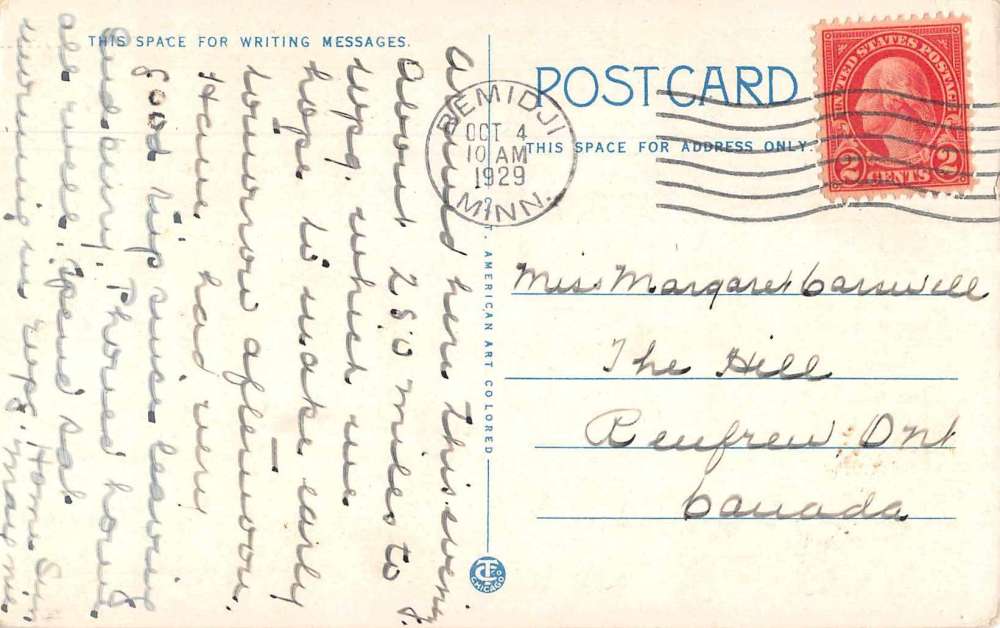 THIS SPACE FOR WRITING MESSAGES.
Arrived here this evening.
About 250 miles to
wpg. which we
hope to make early
tomorrow afternoon.
Have had very
good trip since leaving
and pany. Phoned home
all well. Spend Sat
evening in wpg. Home Sun
C. T. AMERICAN ART COLORED
CT CO CHICAGO
POST CARD
THIS SPACE FOR ADDRESS ONLY.
BEMIDJI
OCT 4
10 AM
1929
MINN.
UNITED STATES POSTAGE
2 CENTS 2
Miss Margaret Carswell
The Hill
Renfrew, Ont
Canada